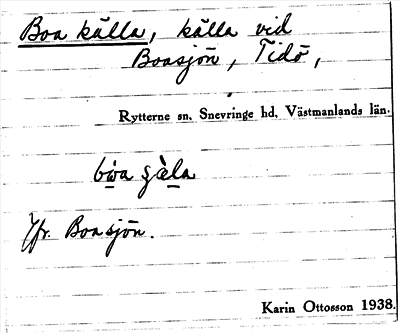 Boa källa, källa vid
Boasjön, Tidö,
Rytterne sn. Snevringe hd. Västmanlands län.
Jfr. Boasjön.
Karin Ottosson 1938.